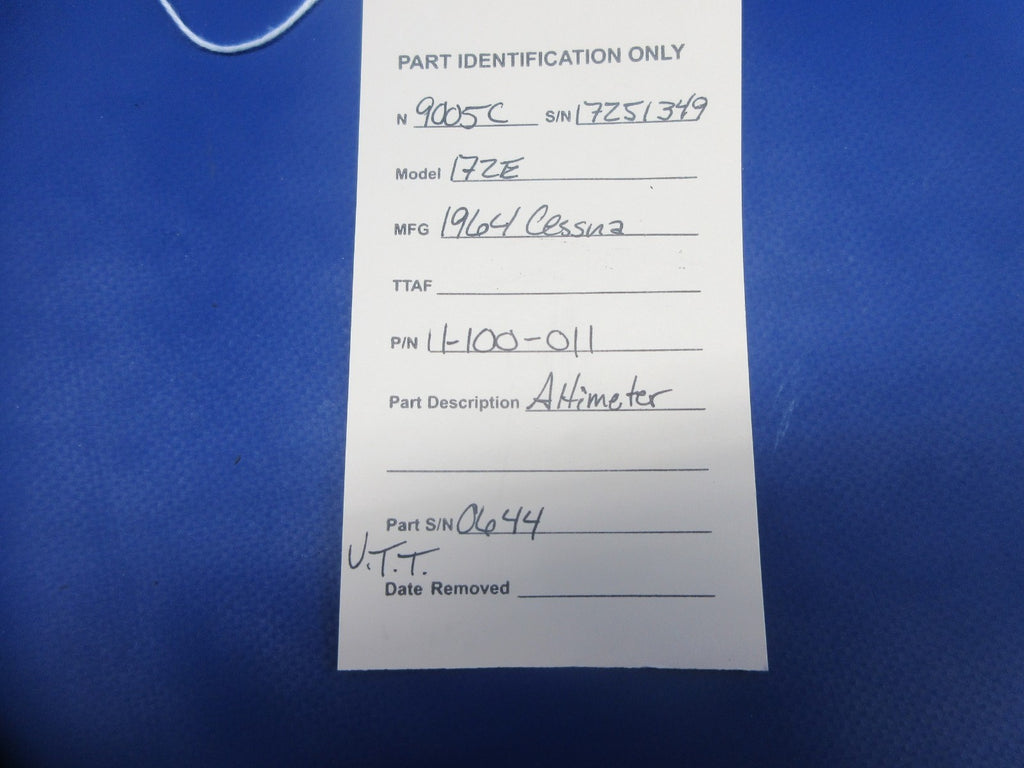 PART IDENTIFICATION ONLY
N 9005C S/N 17251349
Model 172E
MFG 1964 Cessna
TTAF
P/N 11-100-011
Part Description Altimeter
Part S/N 0644
U.T.T.
Date Removed